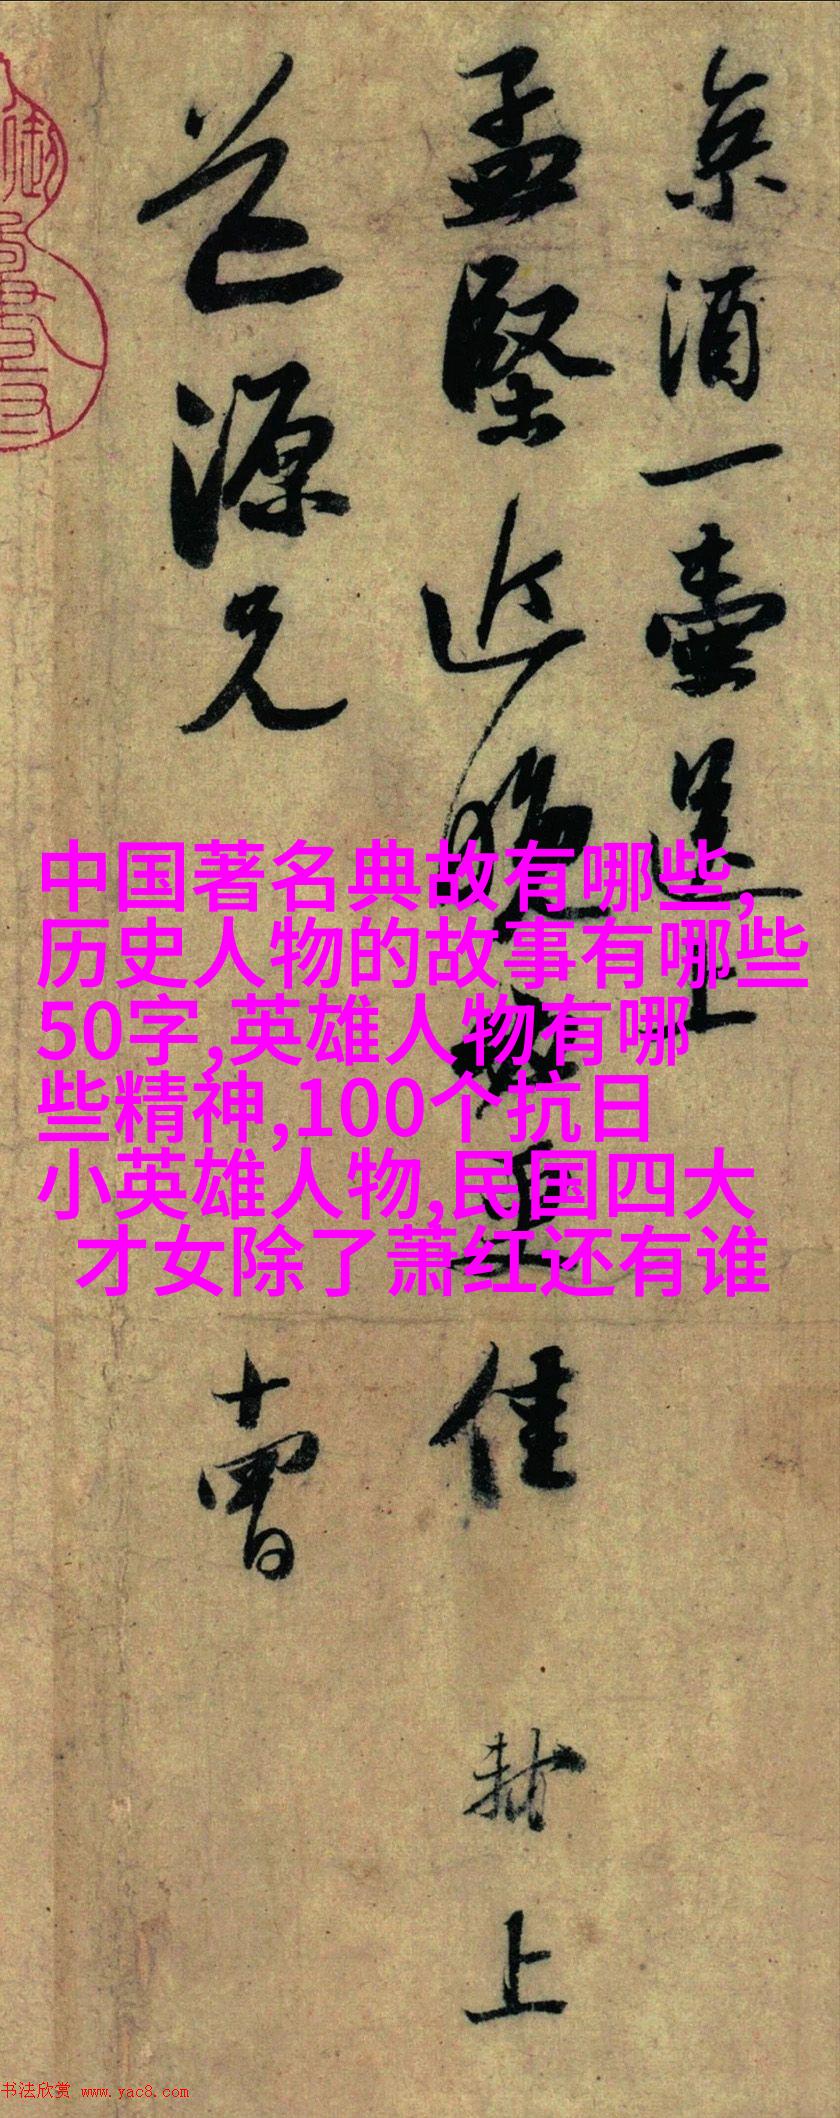 京酒一壺送上
孟堅近晚更佳
軾上
道源兄
十四日
中国著名典故有哪些,
历史人物的故事有哪些
50字,英雄人物有哪
些精神,100个抗日
小英雄人物,民国四大
才女除了萧红还有谁
书法欣赏 www.yac8.com